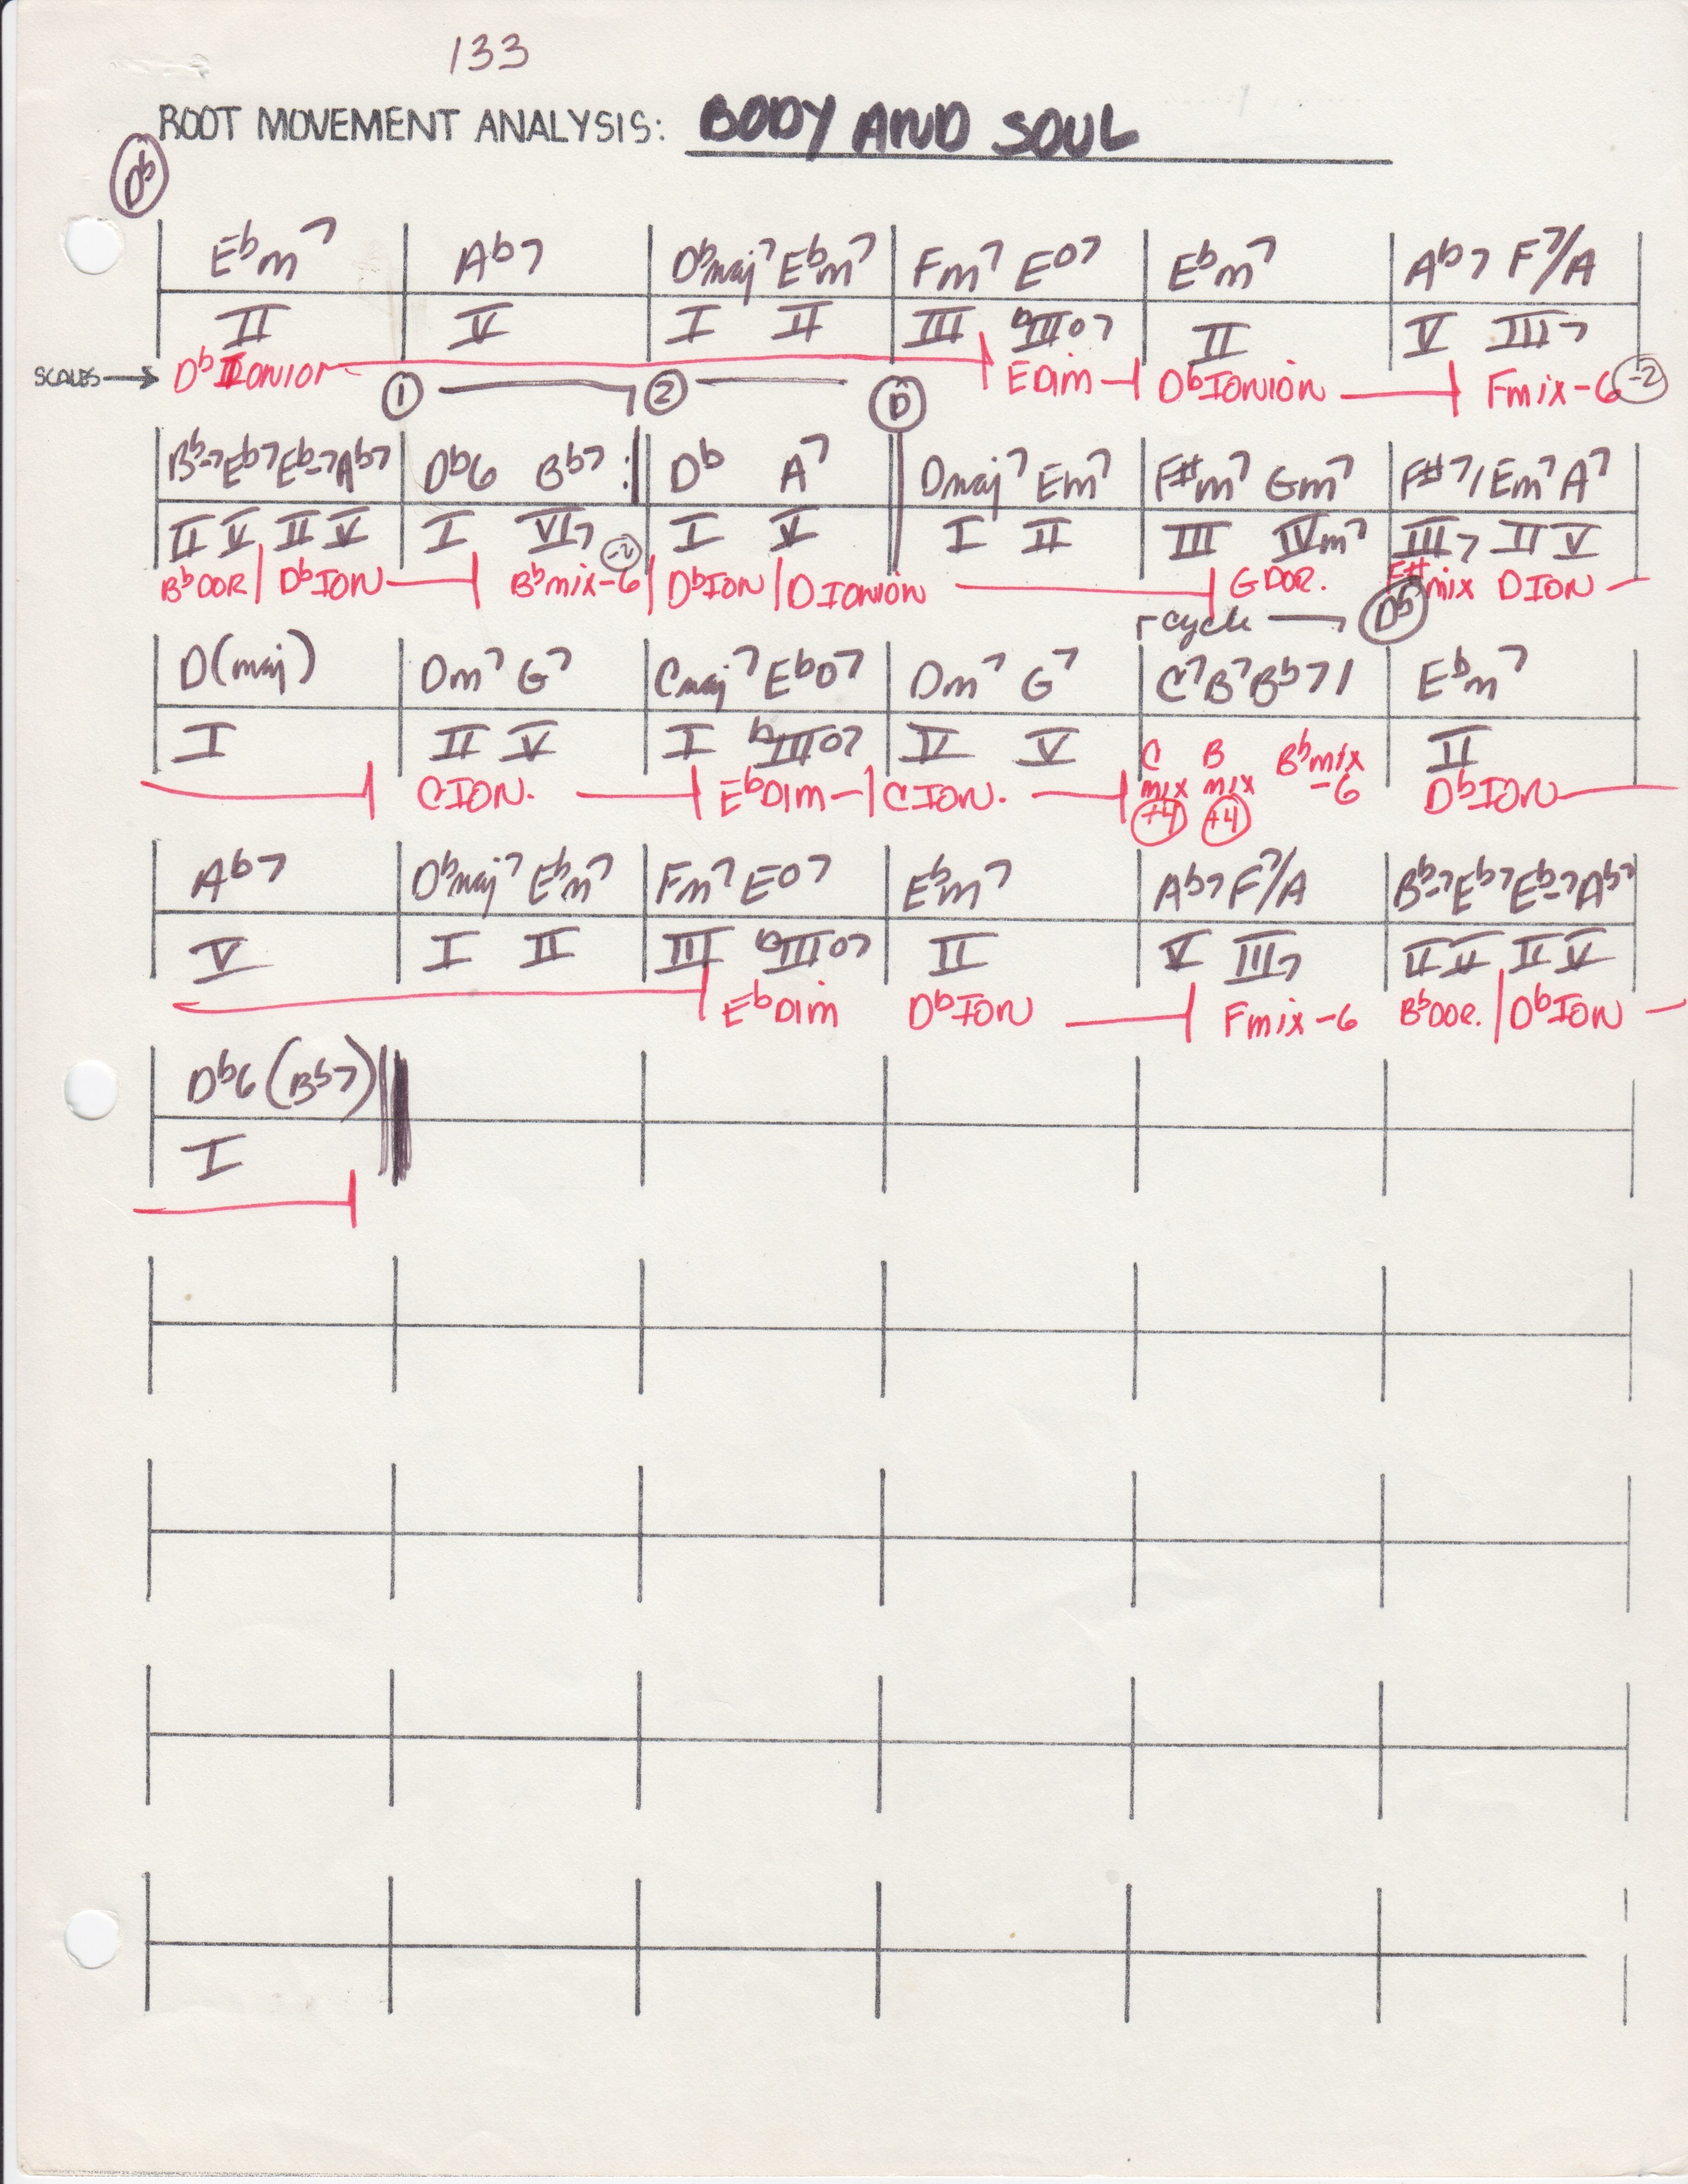 133
ROOT MOVEMENT ANALYSIS: BODY AND SOUL
Db
Ebm7 Ab7 Dbmaj7 Ebm7 Fm7 Eo7 Ebm7 Ab7 F7/A
II V I II III bIIIo7 II V III7
SCALES → Db Ionion E Dim Db IONION F mix-6 -2
1 2 D
Bb-7 Eb7 Eb-7 Ab7 Db6 Bb7 :| Db A7 Dmaj7 Em7 F#m7 Gm7 F#7/ Em7 A7
II V II V I VI7 -2 I V I II III IVm7 III7 II V
Bb DOR/ Db ION Bb mix-6 Db ION D IONION G DOR. F# mix D ION
cycle Db
D(maj) Dm7 G7 Cmaj7 Ebo7 Dm7 G7 C7 B7 Bb7 / Ebm7
I II V I bIIIo7 II V II
C ION. Eb Dim C ION. C mix +4 B mix +4 Bb mix -6 Db ION
Ab7 Dbmaj7 Ebm7 Fm7 Eo7 Ebm7 Ab7 F7/A Bb-7 Eb7 Eb-7 Ab7
V I II III bIIIo7 II V III7 II V II V
Eb Dim Db ION F mix-6 Bb DOR. Db ION
Db6 (Bb7)
I